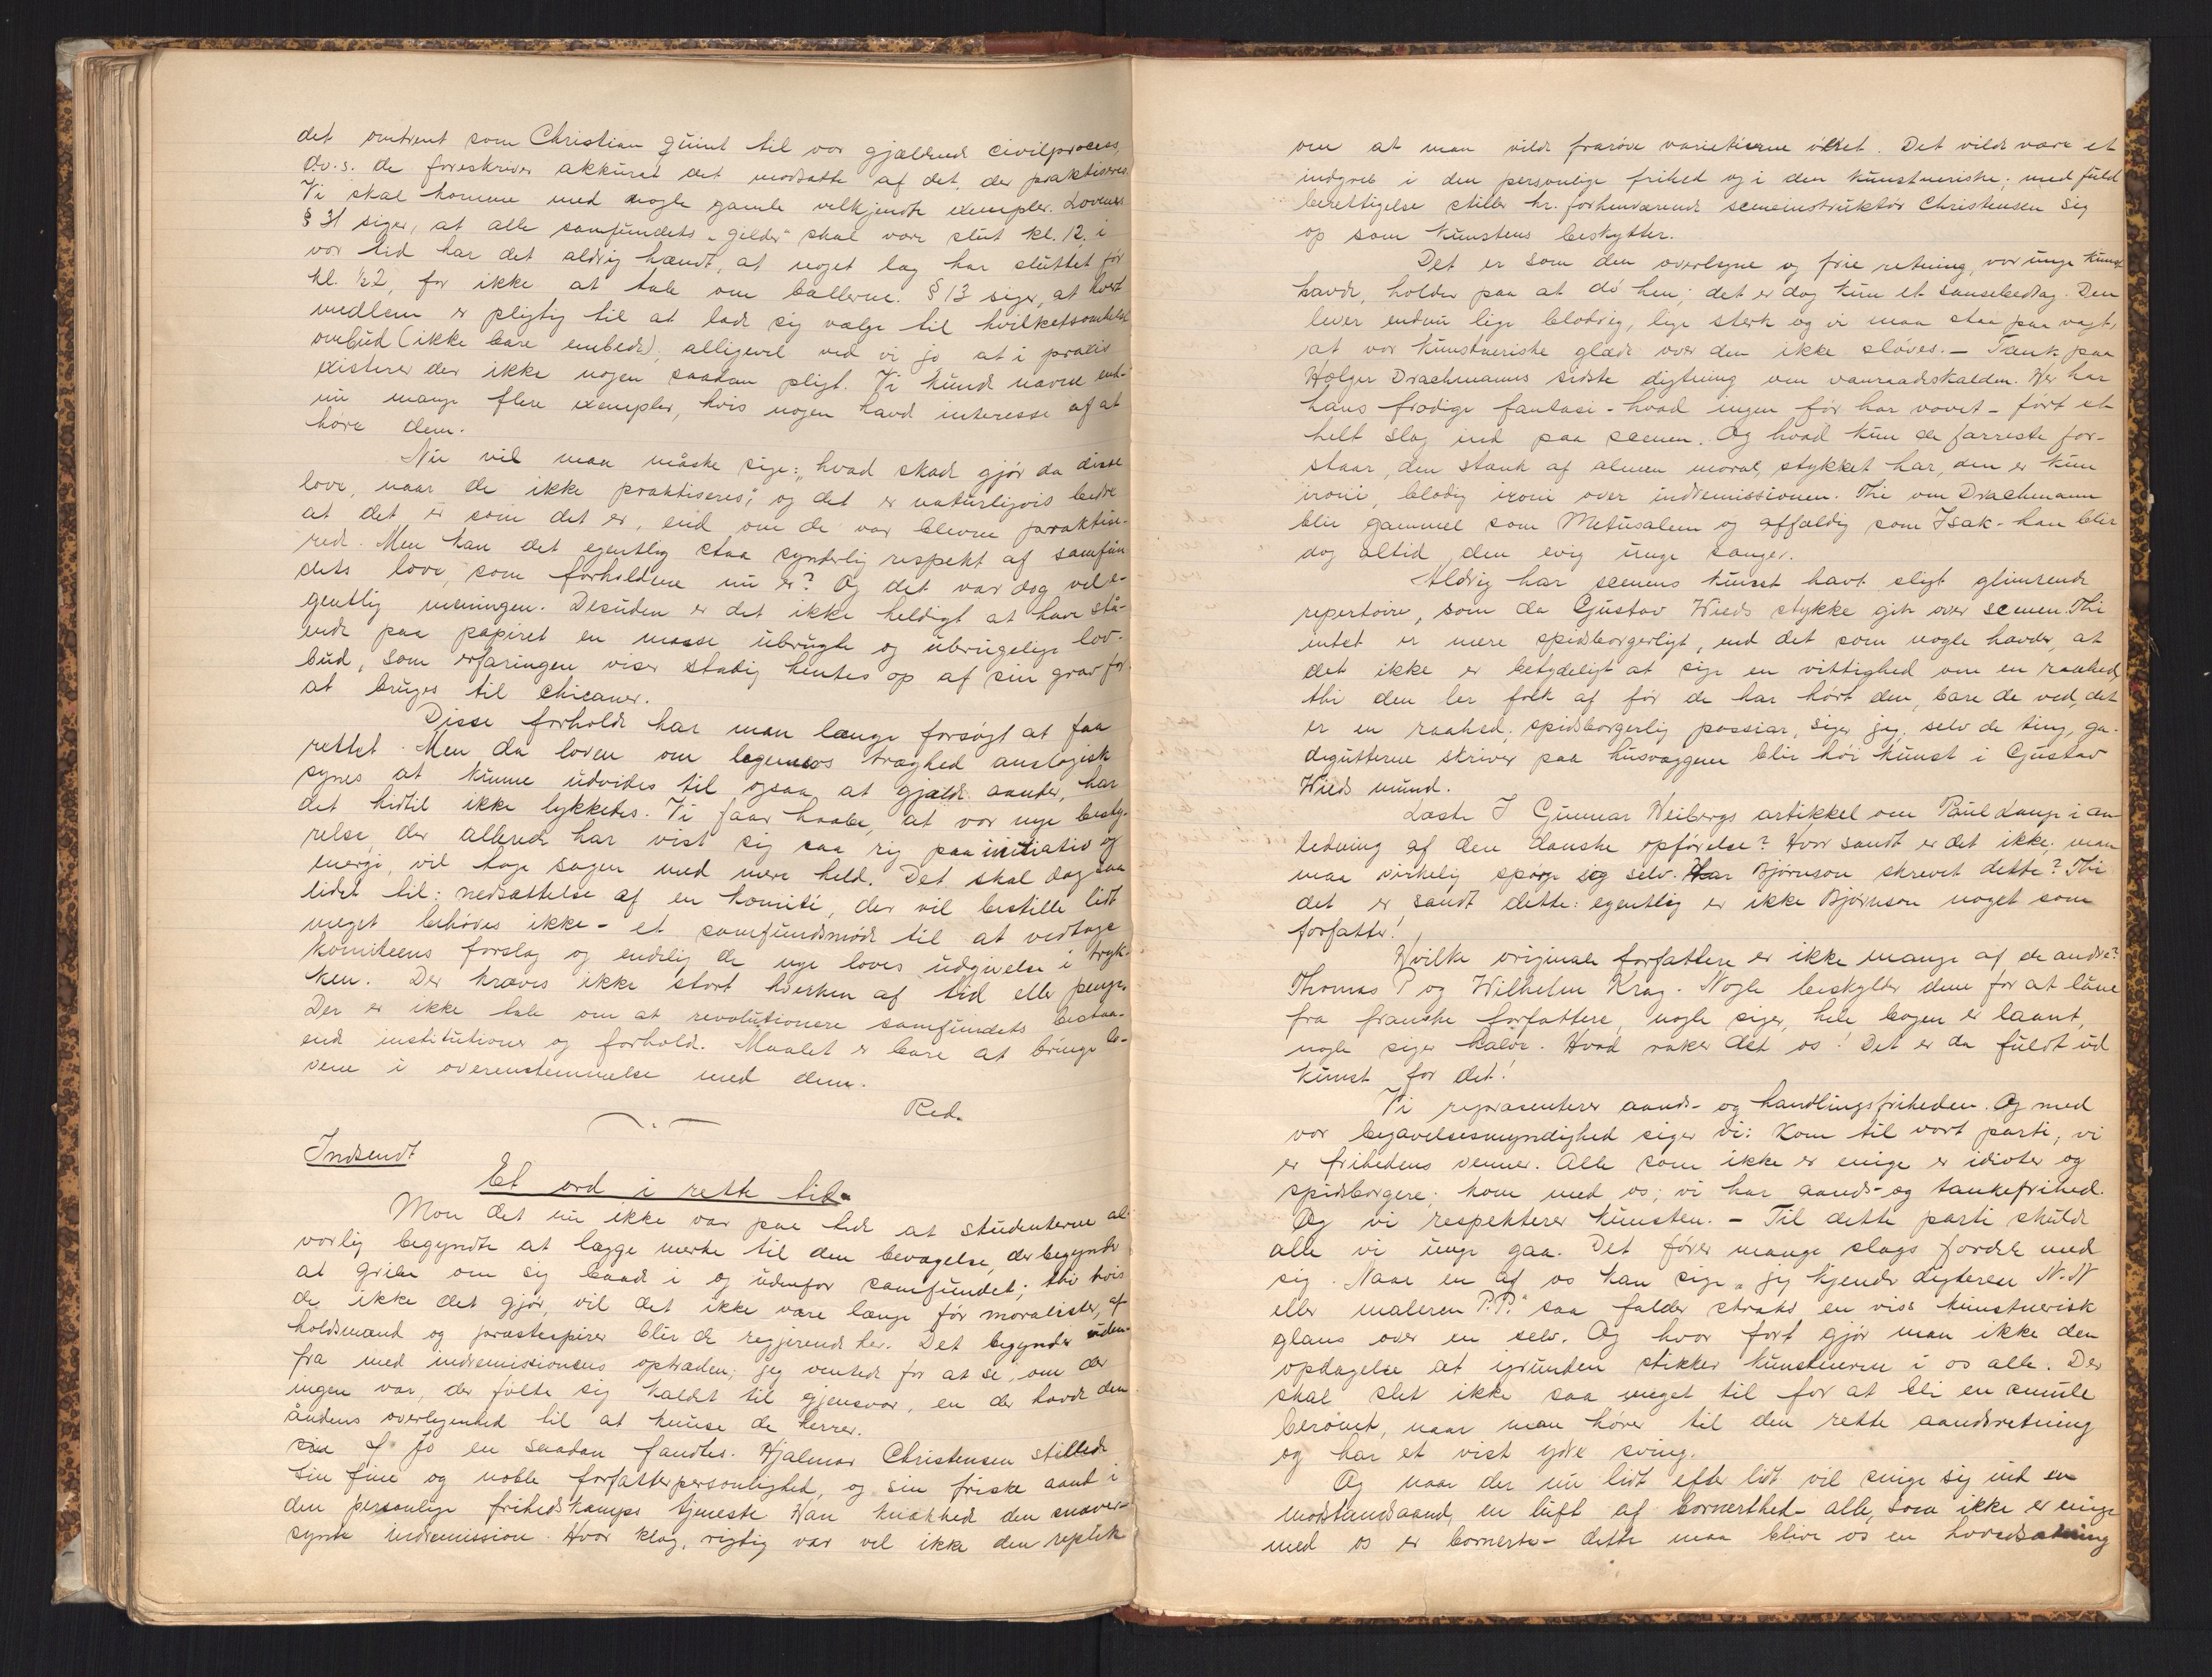 det omtrent som Christian quint til vor gjældende civilproces,
d.v.s. de foreskriver akkurat det modsatte af det, der praktiseres.
Vi skal komme med nogle gamle velkjendte exempler. Lovenes
§ 31 siger, at alle samfundets „gilder" skal være slut kl. 12, i
vor tid har det aldrig hændt, at noget lag har sluttet før
kl. ½2, for ikke at tale om ballerne. § 13 siger, at hvert
medlem er pligtig til at lade sig vælge til hvilketsomhelst
ombud (ikke bare embede); alligevel ved vi jo at i praxis
existerer der ikke nogen saadan pligt. Vi kunde nævne end-
nu mange flere exempler, hvis nogen havde interesse af at
høre dem.
Nu vil man måske sige: „hvad skade gjør da disse
love, naar de ikke praktiseres", og det er naturligvis bedre
at det er som det er, end om de var blevne praktise-
rede. Men kan det egentlig staa synderlig respekt af samfun
dets love, som forholdene nu er? Og det var dog vel e-
gentlig meningen. Desuden er det ikke heldigt at have stå-
ende paa papiret en masse ubrugte og ubrugelige lov-
bud, som erfaringen viser stadig hentes op af sin grav for
at bruges til chicaner.
Disse forholde har man længe forsøgt at faa
rettet. Men da loven om legemers træghed analogisk
synes at kunne udvides til ogsaa at gjælde aander, har
det hidtil ikke lykkedes. Vi faar haabe, at vor nye besty-
relse, der allerede har vist sig saa rig paa initiativ og
energi, vil tage sagen med mere held. Det skal dog saa
lidet til: nedsættelse af en komité, der vil bestille lidt
meget behøves ikke - et samfundsmøde til at vedtage
komiteens forslag og endelig de nye loves udgivelse i tryk-
ken. Der kræves ikke stort hverken af tid eller penge.
Der er ikke tale om at revolutionere samfundets bestaa-
ende institutioner og forhold. Maalet er bare at bringe lo-
vene i overenstemmelse med dem.
Red.
Indsendt
Et ord i rette tid.
Mon det nu ikke var paa tide at studenterne al-
vorlig begyndte at lægge merke til den bevægelse, der begynder
at gribe om sig baade i og udenfor samfundet; thi hvis
de ikke det gjør, vil det ikke være længe før moralister, af
holdsmænd og præstespirer blir de regjerende her. Det begynder uden-
fra med indremissionens optræden; jeg ventede for at se, om der
ingen var, der følte sig kaldt til gjensvar, en der havde den
åndens overlegenhed til at knuse de herrer.
Jo en saadan fandtes. Hjalmar Christensen stillede
sin fine og noble forfatterpersonlighed, og sin friske aand i
den personlige frihedskamps tjeneste Han knækkede den snæver-
synte indremission. Hvor klog, rigtig var vel ikke den replik
om at man vilde frarøve varieteerne øllet. Det vilde være et
indgreb i den personlige frihed og i den kunstneriske; med fuld
berettigelse stiller hr. forhenværende sceneinstruktør Christensen sig
op som kunstens beskytter.
Det er som den overlegne og frie retning, vor unge kunst
havde, holder paa at dø hen; det er dog kun et sansebedrag. Den
lever endnu lige blodrig, lige sterk og vi maa staa paa vagt,
at vor kunstneriske glæde over den ikke sløves. - Tænk paa
Holger Drachmanns sidste digtning om vanraadskalden. Her har
hans frodige fantasi - hvad ingen før har vovet - ført et
helt slag ind paa scenen. Og hvad kun de færreste for-
staar, den stank af almen moral, stykket har, den er kun
ironi, blodig ironi over indremissionen. Thi om Drachmann
blir gammel som Metusalem og affældig som Isak - han blir
dog altid den evig unge sanger.
Aldrig har scenens kunst havt sligt glimrende
repertoire, som da Gustav Wieds stykke gik over scenen. Thi
intet er mere spidsborgerligt, end det som nogle hævder, at
det ikke er betydeligt at sige en vittighed om en raahed,
thi den ler folk af før de har hørt den, bare de ved, det
er en raahed; spidsborgerlig passiar, siger jeg, selv de ting, ga-
degutterne skriver paa husvæggene blir høi kunst i Gustav
Wieds mund.
Læste I Gunnar Heibergs artikkel om Paul Lange i an
ledning af den danske opførelse? Hvor sandt er det ikke, man
maa virkelig spørge sig selv. Har Bjørnson skrevet dette? Thi
det er sandt dette: egentlig er ikke Bjørnson noget som
forfatter!
Hvilke originale forfattere er ikke mange af de andre?
Thomas P og Wilhelm Krag. Nogle beskylder dem for at låne
fra franske forfattere, nogle siger, hele bogen er laant,
nogle siger halve. Hvad raker det os! Det er da fuldt ud
kunst for det!
Vi repræsenterer aands- og handlingsfriheden. Og med
vor begavelsesmyndighed siger vi: Kom til vort parti, vi
er frihedens venner. Alle som ikke er enige er idioter og
spidsborgere; kom med os; vi har aands- og tankefrihed.
Og vi respekterer kunsten. - Til dette parti skulde
alle vi unge gaa. Det fører mange slags fordele med
sig. Naar en af os kan sige „jeg kjender digteren N.N
eller maleren P.P." saa falder straks en viss kunstnerisk
glans over en selv. Og hvor fort gjør man ikke den
opdagelse at igrunden stikker kunstnerne i os alle. Der
skal slet ikke saa meget til for at bli en smule
berømt, naar man hører til den rette aandsretning
og har et vist ydre sving.
Og naar der nu lidt efter lidt vil snige sig ind en
modstandsaand, en luft af bornerthed - alle, som ikke er enige
med os er bornerte - dette maa blive os en hovedsætning